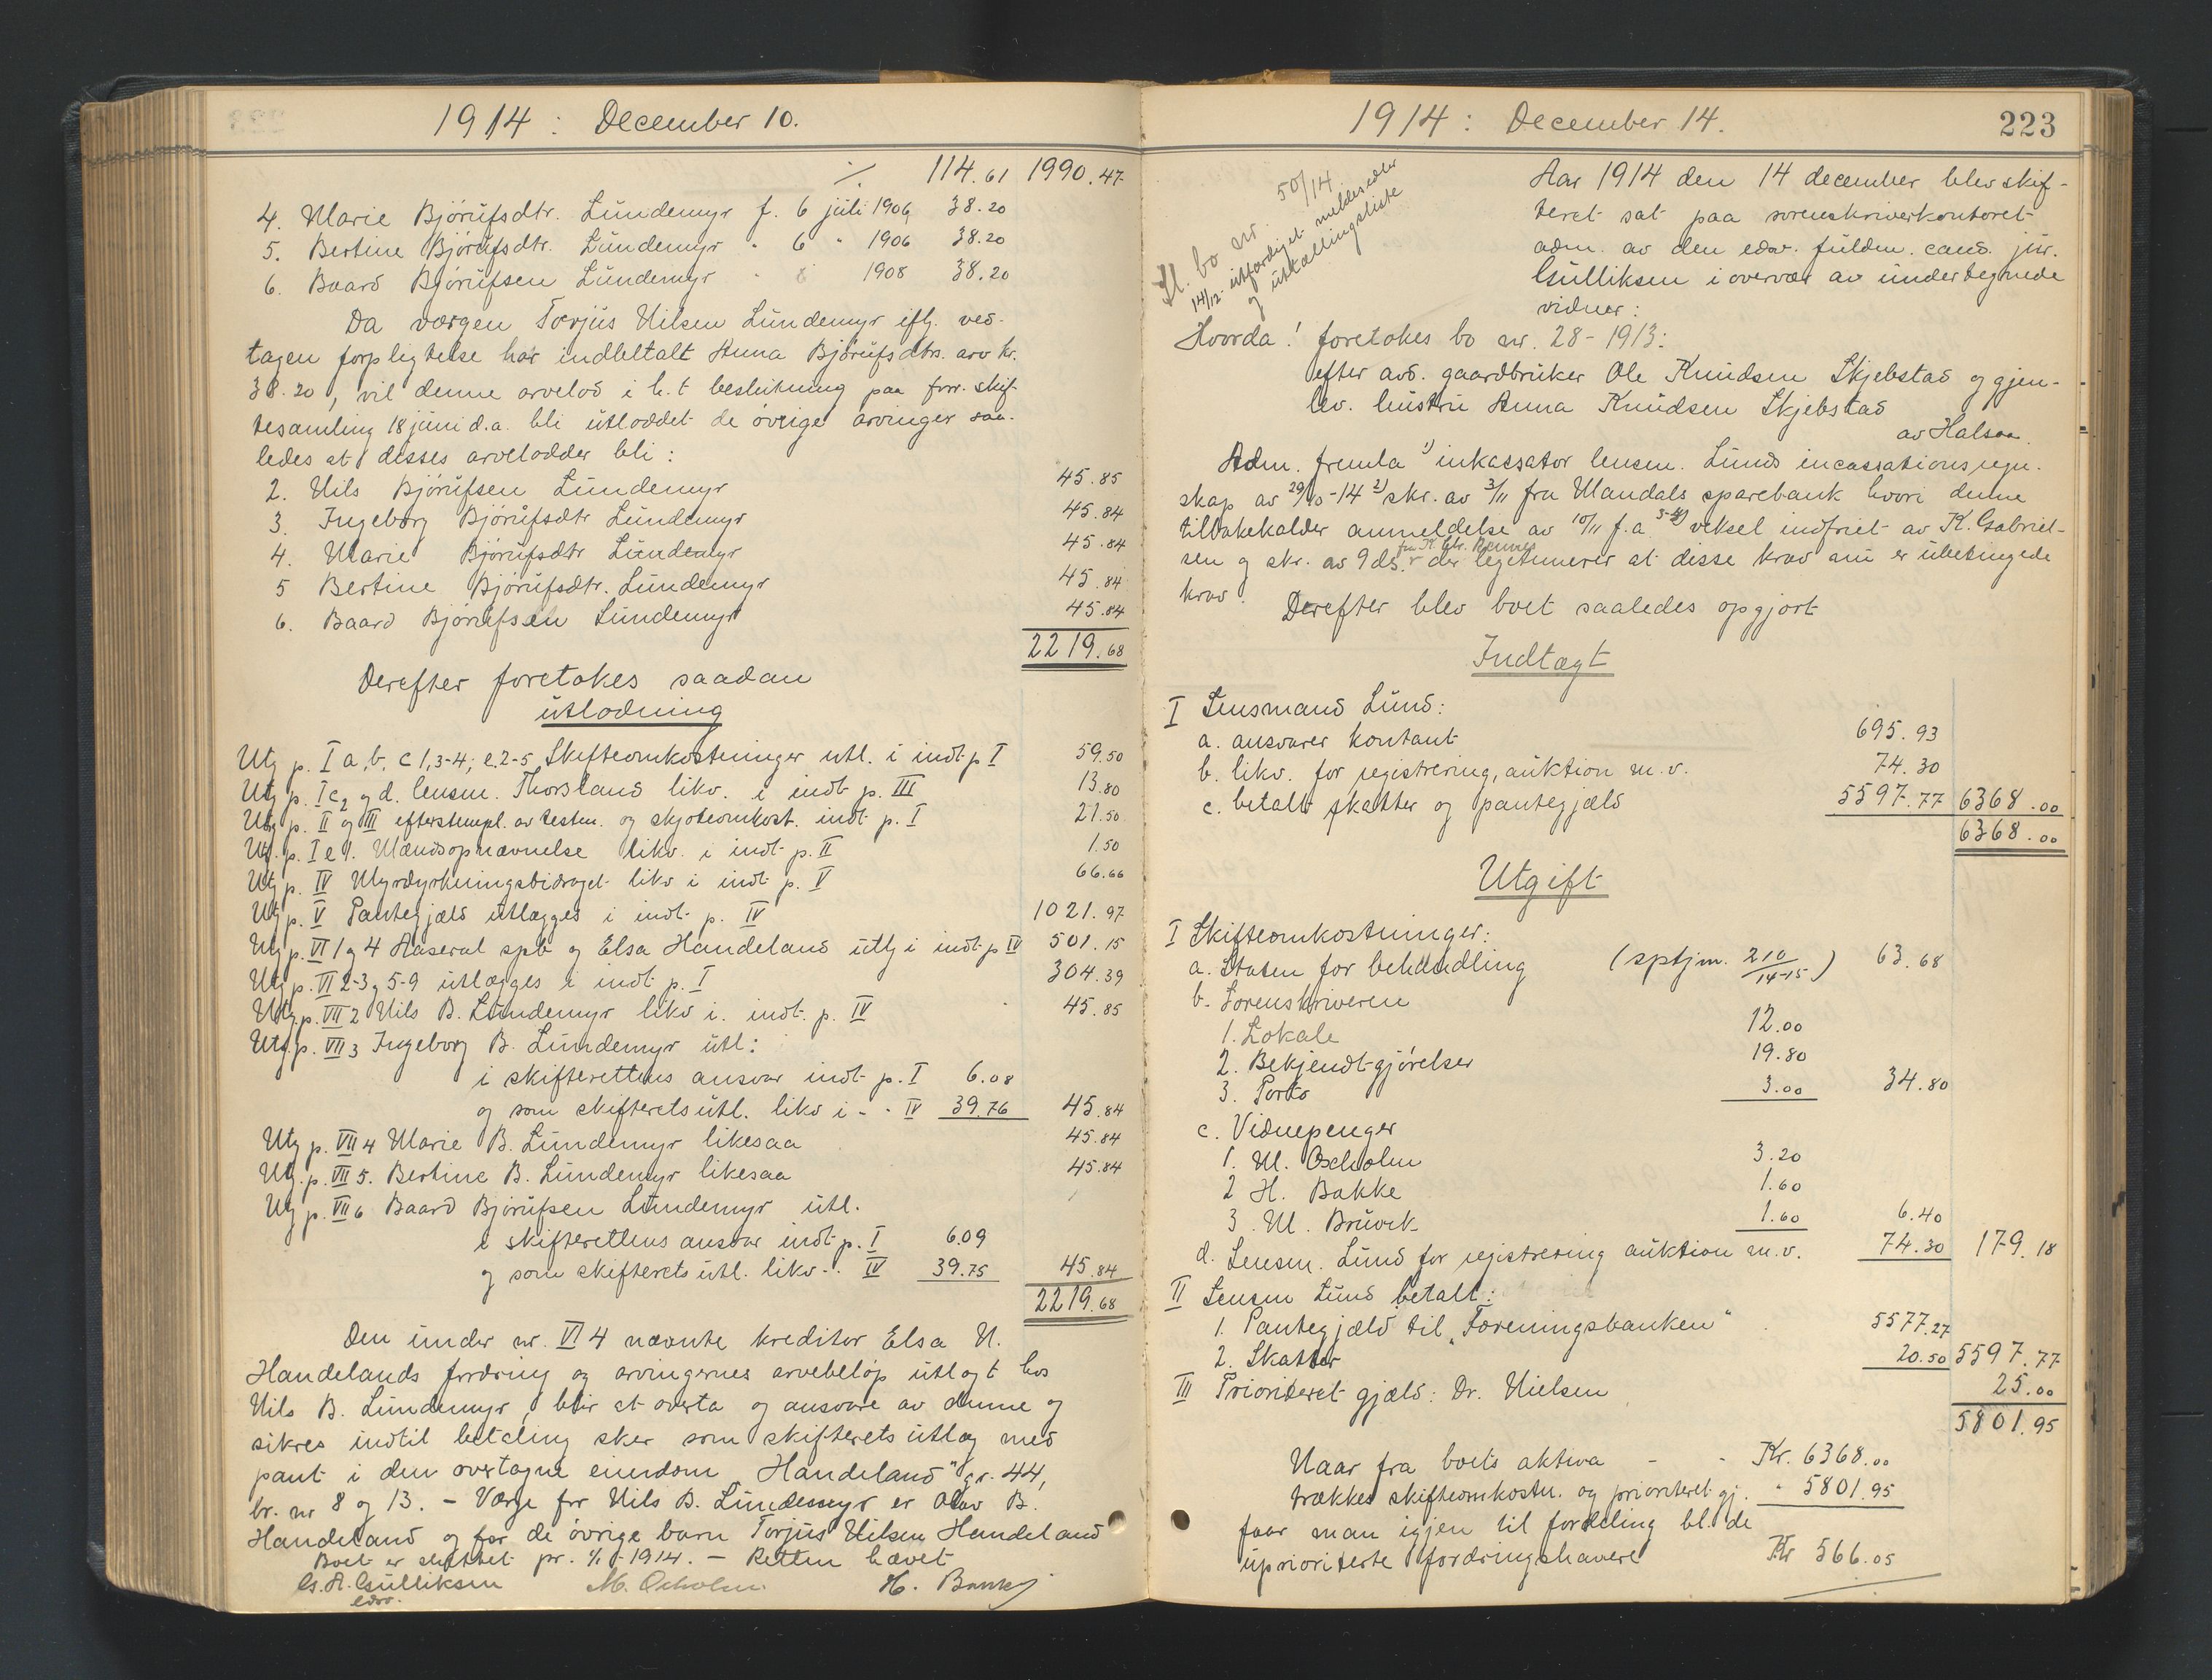 1914: December 10.
% 114.61 1990.47
4. Marie Bjórufsdtr. Lundemyr f. 6 juli 1906 38.20
5. Bertine Bjórufsdtr. Lundemyr " 6 " 1906 38.20
6. Baard Bjórufsen Lundemyr 1908 38.20
Da værgen Torjus Nilsen Lundemyr iflg. ved-
tagen forpligtelse har indbetalt Anna Bjórufsdtrs. arv kr.
38.20, vil denne arvelod i h.t beslutning paa forr. skif-
tesamling 18 juni d.a. bli utloddet de óvrige arvinger saa-
ledes at disses arvelodder bli:
2. Nils Bjórufsen Lundemyr 45.85
3. Ingeborg Bjórufsdtr Lundemyr 45.84
4. Marie Bjórufsdtr Lundemyr 45.84
5 Bertine Bjórufsdtr. Lundemyr 45.84
6. Baard Bjórufsen Lundemyr 45.84
2219.68
Derefter foretakes saadan
utlodning
Utg p. I a, b, c 1,3-4; e.2-5 Skifteomkostninger utl. i indt p I 59.50
Utg p. I c2 og d. lensm. Thorsland likv. i indt p. III 13.80
Utg p. II og III efterstempl. av testm. og skjóteomkost. indt p. I 21.50
Utg. p. I e 1. Mændsopnævnelse likv. i indt p. II 1.50
Utg p. IV Myrdyrkningsbidraget likv i indt p. V 66.66
Utg p. V Pantegjæld utlægges i indt p. IV 1021.97
Utg p. VI 1 og 4 Aaseral spb og Elsa Handeland utlg i indt p IV 501.15
Utg p. VI 2-3 og 5-9 utlægges i indt p. I 304.39
Utg. p. VII 2 Nils B. Lundemyr likv i. indt. p. IV 45.85
Utg. p. VII 3 Ingeborg B. Lundemyr utl:
i skifterettens ansvar indt p. I 6.08
og som skifterets utl. likv i - " IV 39.76 45.84
Utg p. VII 4 Marie B. Lundemyr likesaa 45.84
Utg. p. VII 5. Bertine B. Lundemyr likesaa 45.84
Utg p. VII 6 Baard Bjórufsen Lundemyr utl.
i skifterettens ansvar indt p. I 6.09
og som skifterets utl. likv - " IV 39.75 45.84
2219.68
Den under nr. VI 4 nævnte kreditor Elsa N.
Handelands fordring og arvingernes arvebelóp utlagt hos
Nils B. Lundemyr, blir at overta og ansvare av denne og
sikres indtil betaling sker som skifterets utlæg med
pant i den overtagne eiendom „Handeland" gr. 44,
br. nr 8 og 13. - Værge for Nils B. Lundemyr er Olav B.
Handeland og for de óvrige barn Torjus Nilsen Handeland
Boet er sluttet pr. 1/1-1914. - Retten hævet
G. A. Gulliksen M. Oxholm H. Bakke
edsv.
1914: December 14. 223
Sl. bo nr. 50/14
14/12 utfærdiget meldesedler
og utkallingsliste
Aar 1914 den 14 december blev skif-
teret sat paa sorenskriverkontoret
adm. av den edsv. fuldm. cand. jur.
Gulliksen i overvær av undertegnede
vidner:
Hvorda! foretokes bo nr. 28-1913:
efter avd. gaardbruker Ole Knudsen Skjebstad og gjen-
lev. hustru Anna Knudsen Skjebstad
av Halsaa.
Adm. fremla 1) inkassator lensm. Lunds incassationsregn-
skap av 29/10-14 2) skr. av 3/11 fra Mandals sparebank hvori denne
tilbakekalder anmeldelse av 10/11 f.a 3-4) veksel indfriet av K. Gabriel-
sen og skr. av 9 ds. fra K. Chr. der legitimerer at disse krav nu er ubetingede
krav.
Derefter blev boet saaledes opgjort
Indtægt
I Lensmand Lund:
a. ansvarer kontant 695.93
b. likv. for registrering, auktion m.v. 74.30
c. betalt skatter og pantegjæld 5597.77 6368.00
6368.00
Utgift
I Skifteomkostninger:
a. Staten for behandling (sptjm. 210/14-15) 63.68
b. Sorenskriveren
1. Lokale 12.00
2. Bekjendtgjórelser 19.80
3. Porto 3.00 34.80
c. Vidnepenger
1. M. Oxholm 3.20
2 H. Bakke 1.60
3. M. Bruvik 1.60 6.40
d. Lensm. Lund for registrering auktion m.v. 74.30 179.18
II Lensm Lund betalt:
1. Pantegjæld til „Foreningsbanken" 5577.27
2. Skatter 20.50 5597.77
III Prioriteret gjæld: Dr. Nielsen 25.00
5801.95
Naar fra boets aktiva - - Kr. 6368.00
trækkes skifteomkostn. og prioriteret gj. " 5801.95
faar man igjen til fordeling bl. de
uprioriterte fordringshavere Kr 566.05